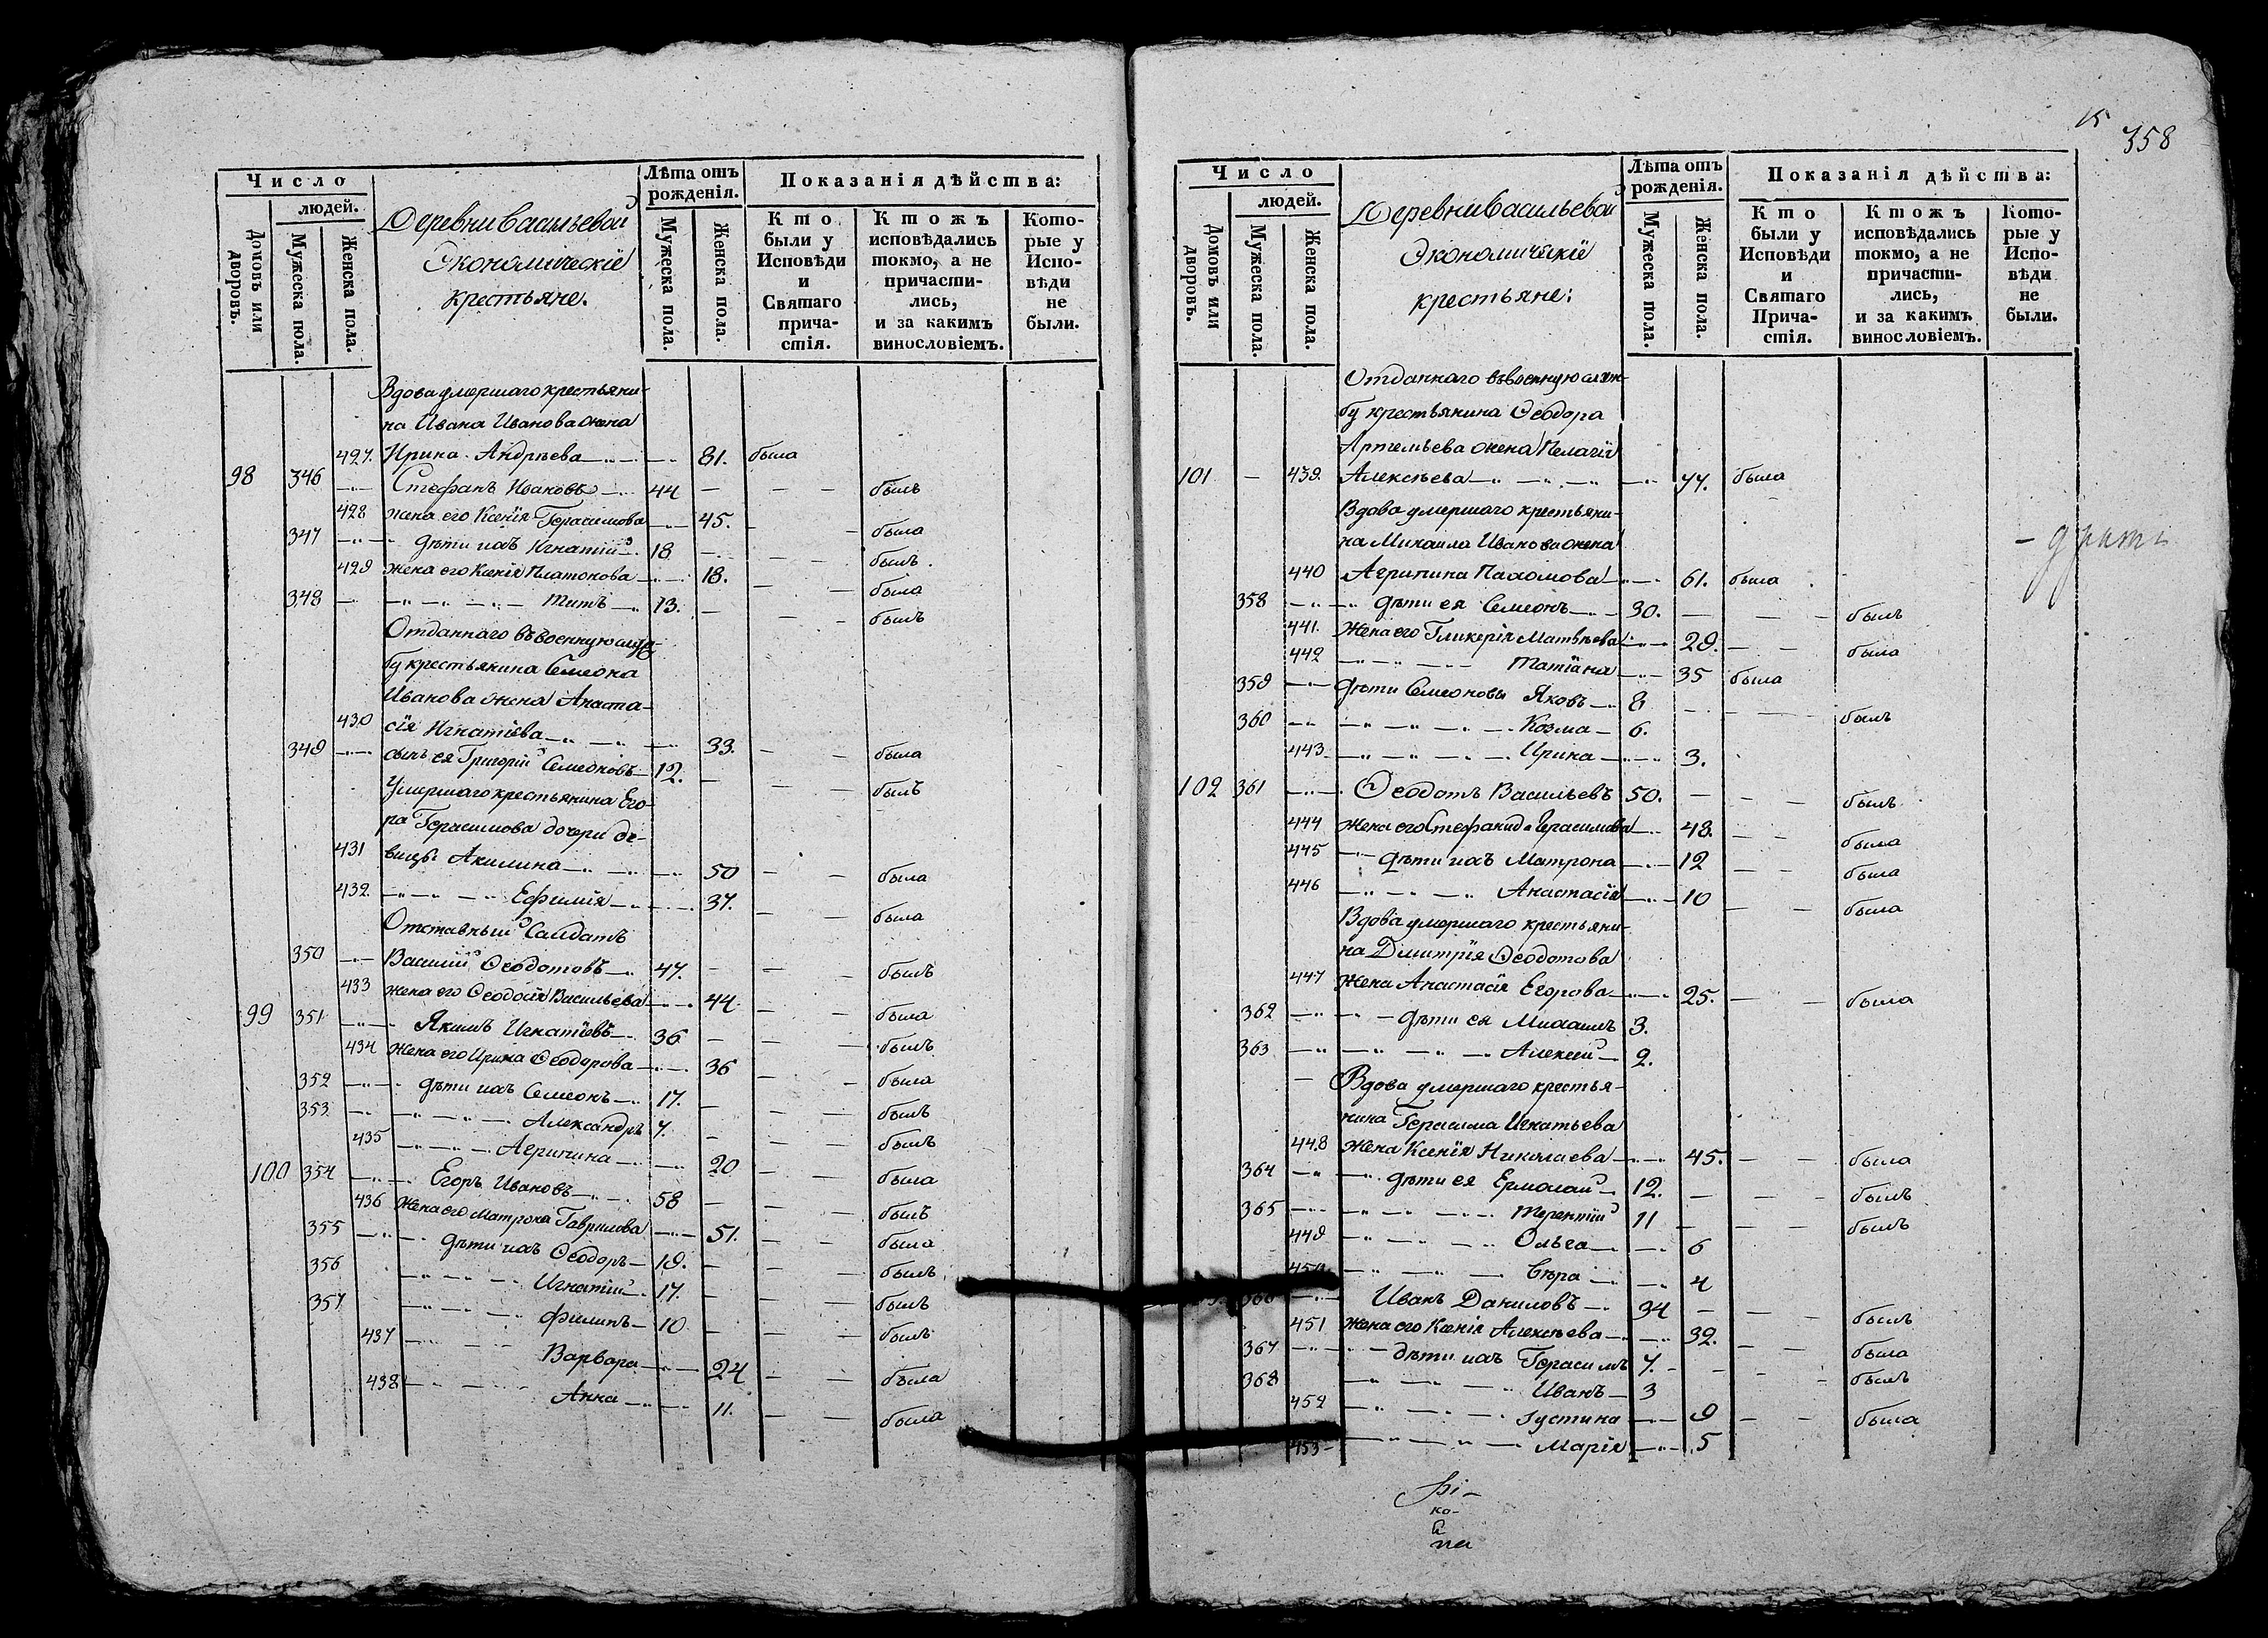 15
358
Число
людей.
Домовъ или дворовъ.
Мужеска пола.
Женска пола.
Деревни Васильевой
Экономическіе
крестьяне.
Лѣта отъ рожденія.
Мужеска пола.
Женска пола.
Показанія дѣйства:
Кто были у Исповѣди и Святаго причастія.
Ктожъ исповѣдались токмо, а не причастились, и за какимъ винословіемъ.
Которые у Исповѣди не были.
Вдова умершаго крестьяни-
на Ивана Иванова жена
427. Ирина Андрѣева 81. была
98 346 Стефанъ Ивановъ 44 былъ
428 жена его Ксенія Герасимова 45. была
347 дѣти ихъ Игнатій 18 былъ
429 жена его Ксенія Платонова 18. была
348 Титъ 13. былъ
Отданнаго въ военную служ-
бу крестьянина Семеона
Иванова жена Анаста-
430 сія Игнатіева 33. была
349 сынъ ея Григорій Семеоновъ 12. былъ
Умершаго крестьянина Его-
ра Герасимова дочери де-
431 вицы Акилина 50 была
432. Ефимія 37. была
Отставный Салдатъ
350 Василий Ѳеодотовъ 47. былъ
433 жена его Ѳеодосія Васильева 44 была
99 351 Якимъ Игнатіевъ 36 былъ
434 жена его Ирина Ѳеодорова 36 была
352 дѣти ихъ Семеонъ 17. былъ
353 Александръ 7. былъ
435 Агрипина 20 была
100 354 Егоръ Ивановъ 58 былъ
436 жена его Матрона Гаврилова 51. была
355 дѣти ихъ Ѳеодоръ 19. былъ
356 Игнатій 17 былъ
357 Филипъ 10 былъ
437 Варвара 24 была
438 Анна 11. была
Число
людей.
Домовъ или дворовъ.
Мужеска пола.
Женска пола.
Деревни Васильевой
Экономическіе
крестьяне:
Лѣта отъ рожденія.
Мужеска пола.
Женска пола.
Показанія дѣйства:
Кто были у Исповѣди и Святаго Причастія.
Ктожъ исповѣдались токмо, а не причастились, и за какимъ винословіемъ.
Которые у Исповѣди не были.
Отданнаго въ военную служ-
бу крестьянина Ѳеодора
Артемьева жена Пелагія
101 439. Алексѣева 77. была
Вдова умершаго крестьяни-
на Михаила Иванова жена
440 Агрипина Пахомова 61. была
358 дѣти ея Семеонъ 30. былъ
441. жена его Гликерія Матвѣева 29. была
442 Татіана 35 была
359 дѣти Семеоновы Яковъ 8 былъ
360 Козма 6.
443 Ирина 3.
102 361 Ѳеодотъ Васильевъ 50. былъ
444 жена его Стефанида Герасимова 48. была
445 дѣти ихъ Матрона 12 была
446 Анастасія 10 была
Вдова умершаго крестьяни-
на Димитрія Ѳеодотова
447 жена Анастасія Егорова 25. была
362 дѣти ея Михаилъ 3.
363 Алексій 2.
Вдова умершаго крестья-
нина Герасима Игнатьева
448 жена Ксенія Николаева 45. была
364 дѣти ея Ермолай 12. былъ
365 Терентій 11 былъ
449 Ольга 6
Вѣра 4
366 Иванъ Даниловъ 34 былъ
451 жена его Ксенія Алексѣева 32. была
367 дѣти ихъ Герасимъ 7. былъ
368 Иванъ 3
452 Іустина 9 была
453 Марія 5
ко-
па